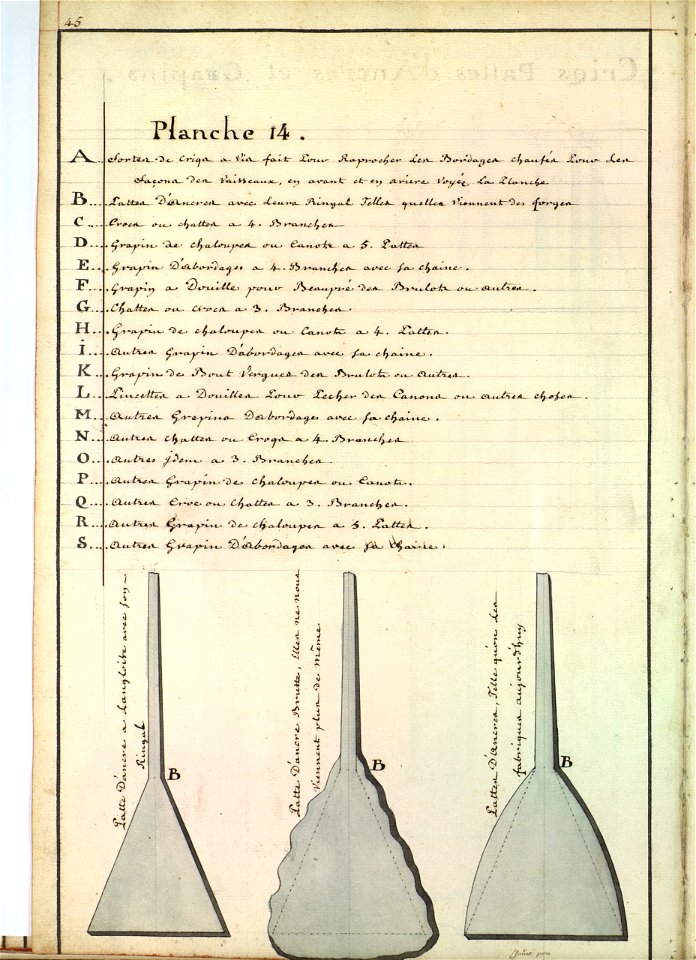 45
Planche 14.
A Sortes de Criqs a Vis fait Pour Raprocher des Bordages chaufés Pour les
façons des Vaisseaux, en avant et en ariere Voyéz La Planche
B.... Pattes D'ancres avec leurs Ringal Telles quelles Viennent des forges
C.... Crocs ou chattes a 4. Branches
D.... Grapin de chaloupes ou Canots a 5. Pattes
E.... Grapin D'abordages a 4. Branches avec sa chaine.
F.... Grapin a Douille pour Beaupré des Brulots ou autres.
G.... Chattes ou Crocs a 3. Branches.
H.... Grapin de chaloupes ou Canots a 4. Pattes.
i.... Autres Grapin D'abordages avec sa chaine.
K.... Grapin de Bout Vergues des Brulots ou Autres.
L.... Pincettes a Douilles Pour Pecher des Canons ou autres choses.
M.... Autres Grapins Dabordages avec sa chaine.
N.... Autres chattes ou Crocqs a 4 Branches
O.... Autres jdem a 3. Branches.
P.... Autres Grapin de chaloupes ou Canots.
Q.... Autres Croc ou Chattes a 3. Branches.
R.... Autres Grapin de chaloupes a 5. Pattes.
S.... Autres Grapin D'abordages avec sa chaine.
Patte D'ancre a Langloise avec son
Ringal
B
Patte D'ancre Brutte, Elles ne nous
Viennent plus de même
B
Pattes D'ancres, Telle qu'on les
fabriques aujourd'huy
B